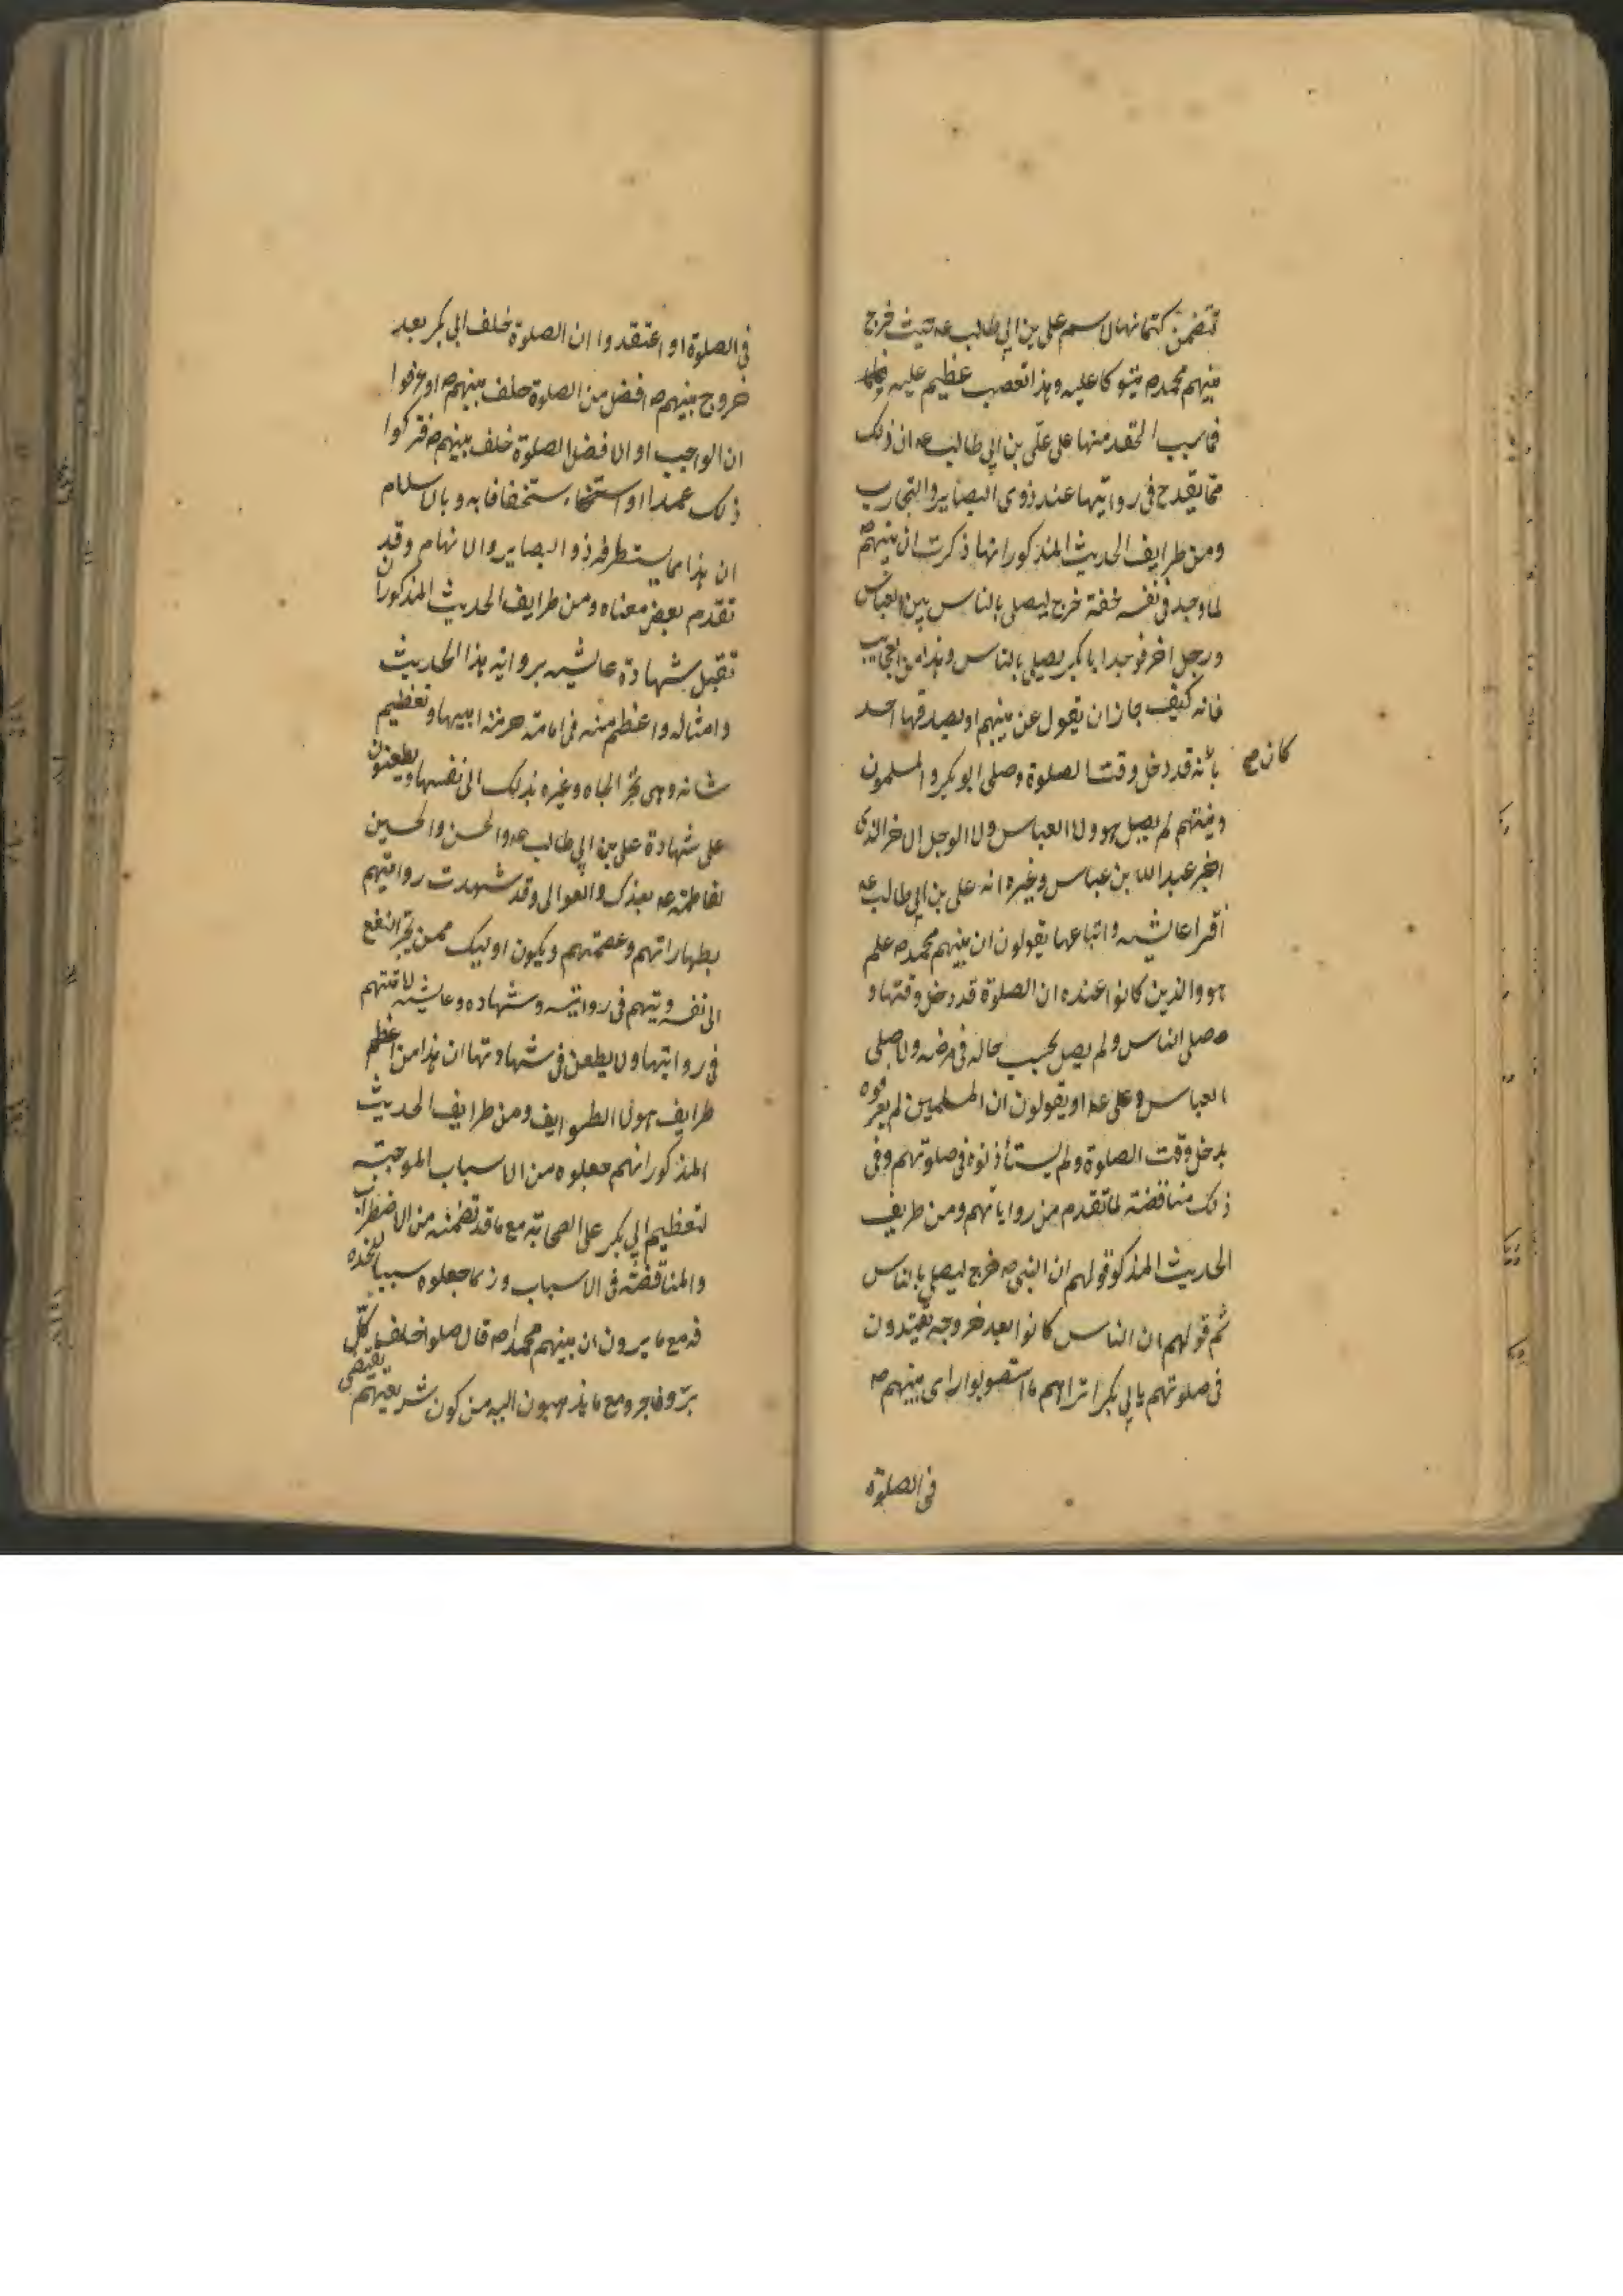 تتضمن كتمانها لاسم علي بن ابي طالب عه حيث خرج
نبيهم محمد ص متوكا عليه وهذا تعصب عظيم عليه
فما سبب الحقد منها على علي بن ابي طالب عه ان ذلك
مما يقدح في روايتها عند ذوى البصاير والتجارب
ومن طرايف الحديث المذكور انها ذكرت ان نبيهم ص
لما وجد في نفسه خفة خرج ليصلى بالناس بين العباس
ورجل اخر فوجد ابا بكر يصلى بالناس وهذا من العجايب
فانه كيف جاز ان يقول عن نبيهم او يصدقها احد
بأنه قد دخل وقت الصلوة وصلى ابو بكر والمسلمون
كان ص
ونبيهم لم يصل هو ولا العباس ولا الرجل الاخر الذى
اخبر عبد الله بن عباس وغيره انه على بن ابي طالب عه
أفترا عايشه واتباعها يقولون ان نبيهم محمد ص علم
هو والذين كانوا عنده ان الصلوة قد دخل وقتها و
صلى الناس ولم يصل بحسب حاله في مرضه ولا صلى
العباس و على عه او يقولون ان المسلمين لم يعرفوه
بدخل وقت الصلوة ولم يستأذنوه في صلوتهم وفى
ذلك مناقضة لما تقدم من رواياتهم ومن طريف
الحديث المذكو قولهم ان النبى ص خرج ليصلى بالناس
ثم قولهم ان الناس كانوا بعد خروجه يقتدون
فى صلوتهم بابي بكر اتراهم ما استصوبوا راى نبيهم ص
فى الصلوة
فى الصلوة او اعتقدوا ان الصلوة خلف ابى بكر بعد
خروج نبيهم ص افضل من الصلوة خلف نبيهم ص او عرفوا
ان الواجب او الافضل الصلوة خلف نبيهم ص فتركوا
ذلك عمدا او استخفافا به وبالاسلام
ان هذا مما يستطرفه ذو البصاير والافهام وقد
تقدم بعض معناه ومن طرايف الحديث المذكور ان
تقبل شهادة عايشه بروايته هذا الحديث
وامثاله واعظم منه فى امامة حرمة ابيها وتعظيم
شانه وهى تجر الجاه وغيره بذلك الى نفسها ويطعنون
على شهادة على بن ابي طالب عه والحسن والحسين
لفاطمة عه بفدك والعوالى وقد شهدت روايتهم
بطهاراتهم وعصمتهم ويكون اوليك ممن يجر النفع
الى نفسه ويتهم فى روايته وشهاده وعايشه لا تتهم
فى روايتها ولا يطعن فى شهادتها ان هذا من اعظم
طرايف هولا الطوايف ومن طرايف الحديث
المذكور انهم جعلوه من الاسباب الموجبة
لتعظيم ابي بكر على الصحابة مع ما قد تضمنه من الاضطراب
والمناقضة فى الاسباب وزما جعلوه سببا
فه مع ما يروون ان نبيهم محمدا ص قال صلوا خلف كلّ
برّ وفاجر ومع ما يذهبون اليه من كون شريعتهم يقتضى